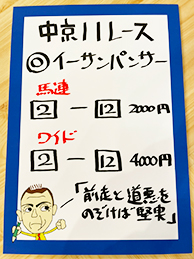 中京11レース
◎イーサンパンサー
馬連
2 — 12 2000円
ワイド
2 — 12 4000円
「前走と道悪を
のぞけば堅実」